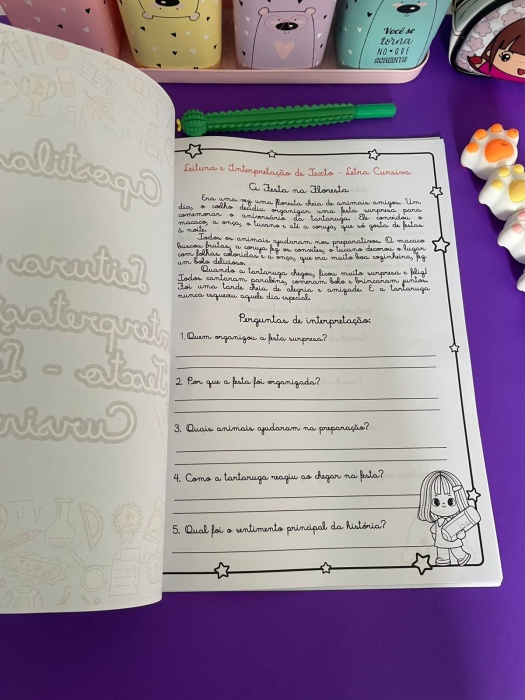 Você se
torna
NO • QUE
ACREDITA
Leitura e Interpretação de Texto - Letra Cursiva
A Festa na Floresta
Era uma vez uma floresta cheia de animais amigos. Um
dia, o coelho decidiu organizar uma festa surpresa para
comemorar o aniversário da tartaruga. Ele convidou o
macaco, a onça, o tucano e até a coruja, que só gosta de festas
à noite.
Todos os animais ajudaram nos preparativos. O macaco
buscou frutas, a coruja fez os convites, o tucano decorou o lugar
com folhas coloridas e a onça, que era muito boa cozinheira, fez
um bolo delicioso.
Quando a tartaruga chegou, ficou muito surpresa e feliz!
Todos cantaram parabéns, comeram bolo e brincaram juntos.
Foi uma tarde cheia de alegria e amizade. E a tartaruga
nunca esqueceu aquele dia especial.
Perguntas de interpretação:
1. Quem organizou a festa surpresa?
2. Por que a festa foi organizada?
3. Quais animais ajudaram na preparação?
4. Como a tartaruga reagiu ao chegar na festa?
5. Qual foi o sentimento principal da história?